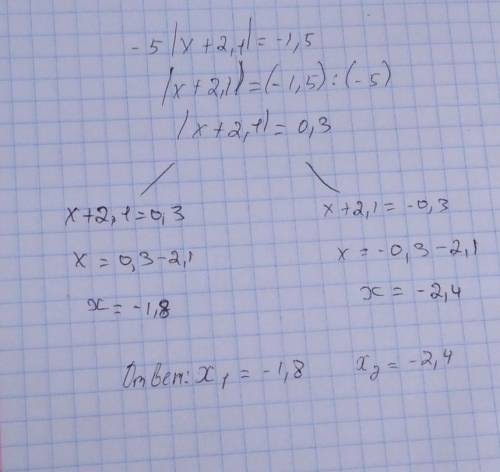 -5 |x+2,1|=-1,5
|x+2,1|=(-1,5):(-5)
|x+2,1|=0,3
x+2,1=0,3
x=0,3-2,1
x=-1,8
x+2,1=-0,3
x=-0,3-2,1
x=-2,4
Ответ: x₁=-1,8 x₂=-2,4